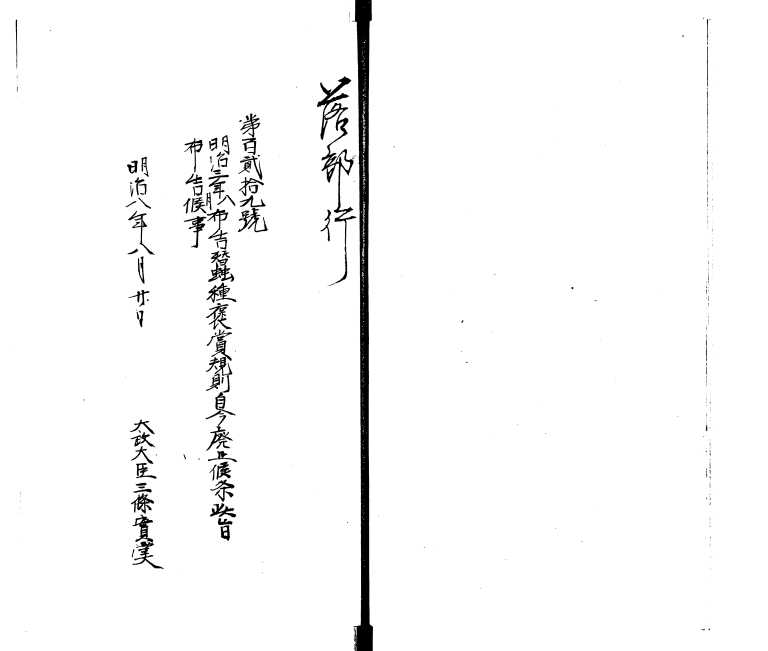 落部行
第百貳拾九號
明治三年八月布告蚕種褒賞規則自今廃止候条此旨
布告候事
明治八年八月廿日
太政大臣三條實美